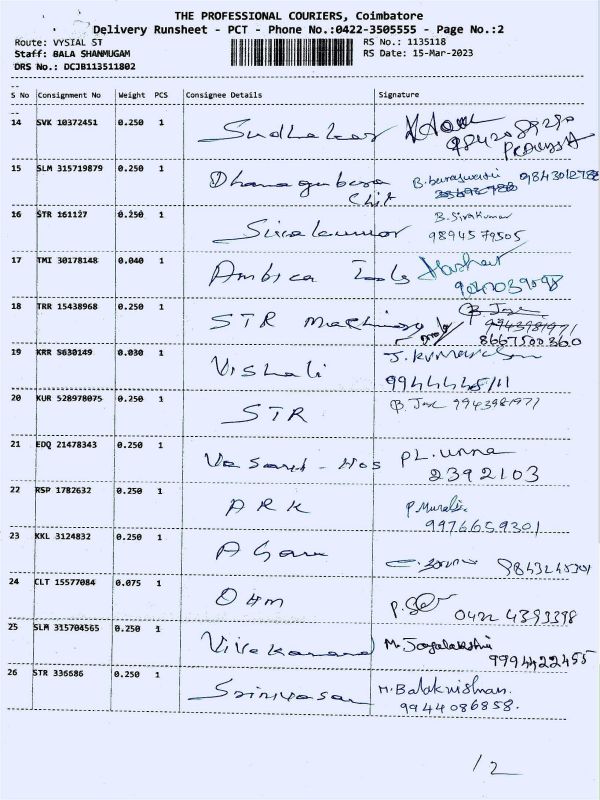 THE PROFESSIONAL COURIERS, Coimbatore
Delivery Runsheet - PCT - Phone No.:0422-3505555 - Page No.:2
Route: VYSIAL ST
RS No.: 1135118
Staff: BALA SHANMUGAM
RS Date: 15-Mar-2023
DRS No.: DCJB113511802
S No Consignment No Weight PCS Consignee Details Signature
14 SVK 10372451 0.250 1 Sudhakar
15 SLM 315719879 0.250 1
Chit
16 STR 161127 0.250 1 Sivakumar B. Sivakumar
9894579505
17 TMI 30178148 0.040 1 Ambica Tools
18 TRR 15438968 0.250 1 STR Machinery
9943981971
8667500360
19 KRR 5630149 0.030 1 Vishali
20 KUR 528978075 0.250 1 STR 9943981971
21 EDQ 21478343 0.250 1 Vasant - Hos PL. unna
2392103
22 RSP 1782632 0.250 1 ARK P. Murali
9976659301
23 KKL 3124832 0.250 1
24 CLT 15577084 0.075 1 OHM
0422 4393398
25 SLM 315704565 0.250 1 Vivekanand M. Jogalakshmi
9994422455
26 STR 336686 0.250 1 Srinivasan M. Balakrishnan.
9944086858.
12